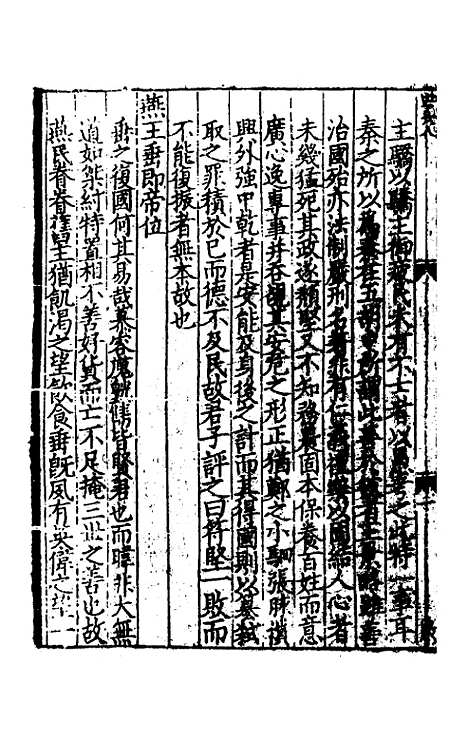 主驕以驕主御疲民未有不亡者以愚考之此特一事耳
秦之所以
治國殆亦法制嚴刑名者非有仁義禮樂以固結人心者
未幾猛死其政遂頽堅又不知務農固本保養百姓而意
廣心逸專事并吞觀其安危之形正猶鄭之小駟張脉僨
興外強中乾者是安能及身後之計而其得國則以篡弑
取之罪積於已而德不及民故君子評之曰符堅一敗而
不能復振者無本故也
燕王垂即帝位
垂之復國何其易哉慕容廆皝儁皆賢君也而暐非大無
道如桀紂特置相不善好貨而亡不足掩三世之善也故
燕民眷眷舊皇猶飢渴之望飲食垂既夙有英偉之